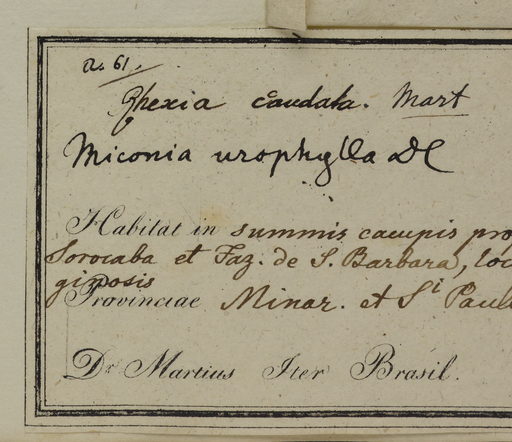 No. 61.
Rhexia caudata. Mart
Miconia urophylla DC
Habitat in summis campis pro
Sorocaba et Faz. de S. Barbara, loc
ginosis
Provinciae Minar. et S.i Paul
Dr. Martius Iter Brasil.